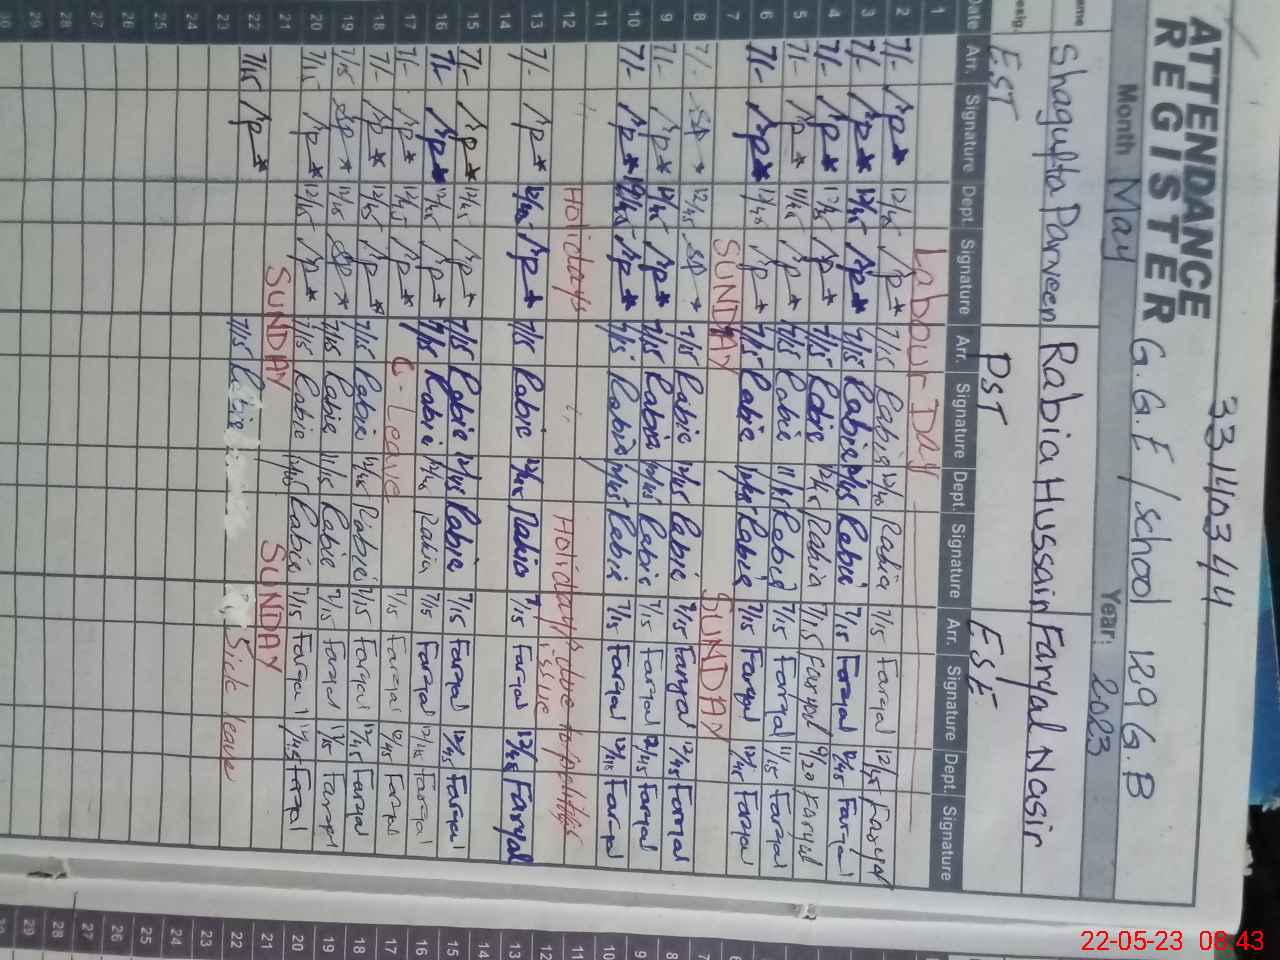 33114n344
ATTENDANCE REGISTER
G.G.E/school 129 G.B
Month May Year: 2023
Name Shagufta Parveen Rabia Hussain Faryal Nasir
Desig. EST PST ESE
Date Arr. Signature Dept. Signature Arr. Signature Dept. Signature Arr. Signature Dept. Signature
1 Labour Day
2 7/- 12/45 7/15 Rabia 12/45 Rabia 7/15 Faryal 12/45 Faryal
3 7/- 12/45 7/15 Rabia 12/45 Rabia 7/15 Faryal 12/45 Faryal
4 7/- 12/45 7/15 Rabia 12/45 Rabia 7/15 Faryal 9/20 Faryal
5 7/- 11/15 7/15 Rabia 11/15 Rabia 7/15 Faryal 11/15 Faryal
6 7/- 12/45 7/15 Rabia 12/45 Rabia 7/15 Faryal 12/45 Faryal
7 SUNDAY SUNDAY
8 7/- 12/45 7/15 Rabia 12/45 Rabia 7/15 Faryal 12/45 Faryal
9 7/- 12/45 7/15 Rabia 12/45 Rabia 7/15 Faryal 12/45 Faryal
10 7/- 12/45 7/15 Rabia 12/45 Rabia 7/15 Faryal 12/45 Faryal
11
12 Holidays Holidays due to politics issue
13 7/- 12/45 7/15 Rabia 12/45 Rabia 7/15 Faryal 12/45 Faryal
14
15 7/- 12/45 7/15 Rabia 12/45 Rabia 7/15 Faryal 12/45 Faryal
16 7/- 12/45 7/15 Rabia 12/45 Rabia 7/15 Faryal 12/45 Faryal
17 7/- 12/45 C-Leave 7/15 Faryal 12/45 Faryal
18 7/- 12/45 7/15 Rabia 12/45 Rabia 7/15 Faryal 12/45 Faryal
19 7/15 12/15 7/15 Rabia 11/15 Rabia 7/15 Faryal 11/15 Faryal
20 7/15 12/15 7/15 Rabia 12/45 Rabia 7/15 Faryal 12/45 Faryal
21 SUNDAY SUNDAY
22 7/15 7/15 Rabia Sick leave
23
24
25
26
27
28
29
30
7
8
9
10
11
12
13
14
15
16
17
18
19
20
21
22
23
24
25
26
27
28
29
22-05-23 08:43